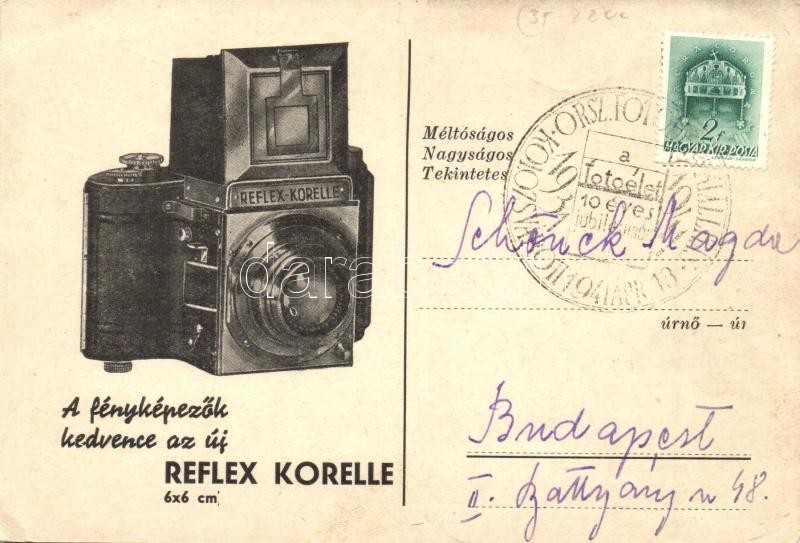 (35
REFLEX-KORELLE
A fényképezők
kedvence az új
REFLEX KORELLE
6x6 cm
Méltóságos
Nagyságos
Tekintetes
2f
MAGYAR KIR. POSTA
KOLOZSVÁR
1941 ÁPR. 13
a
Fotóélet
10 éves
Schönck Magda
úrnő — úr
Budapest
II. Battyány u 48.
darabanth